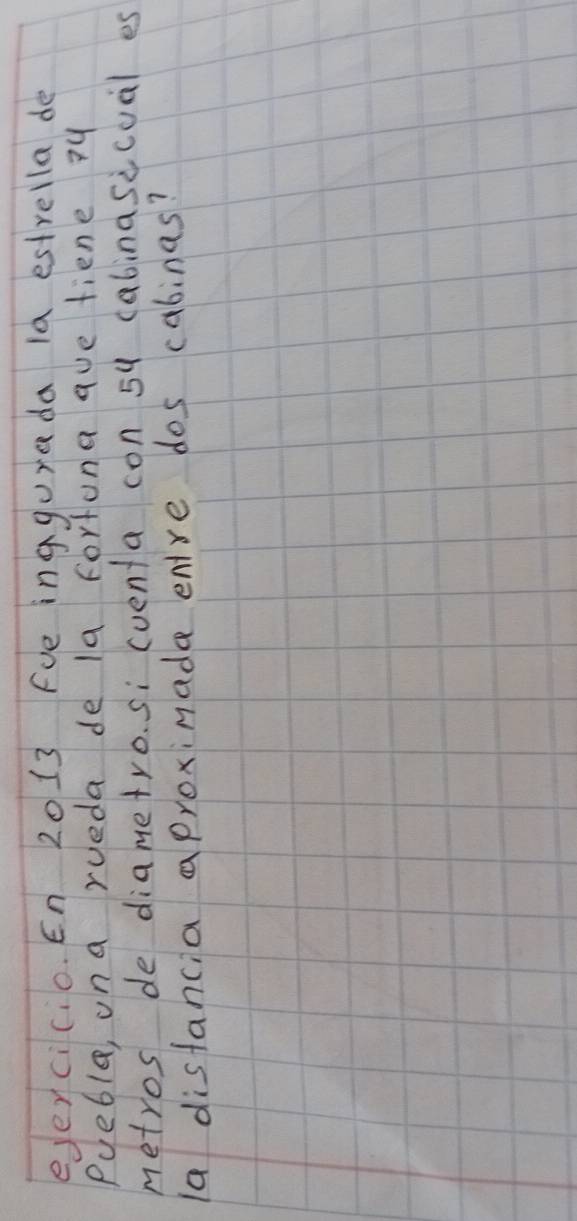 ejercicio. En 2013 fue inaugurada la estrella de
Puebla, una rueda de la fortuna que tiene 74
metros de diametro. si cuenta con 54 cabinas ¿cuál es
la distancia aproximada entre dos cabinas?